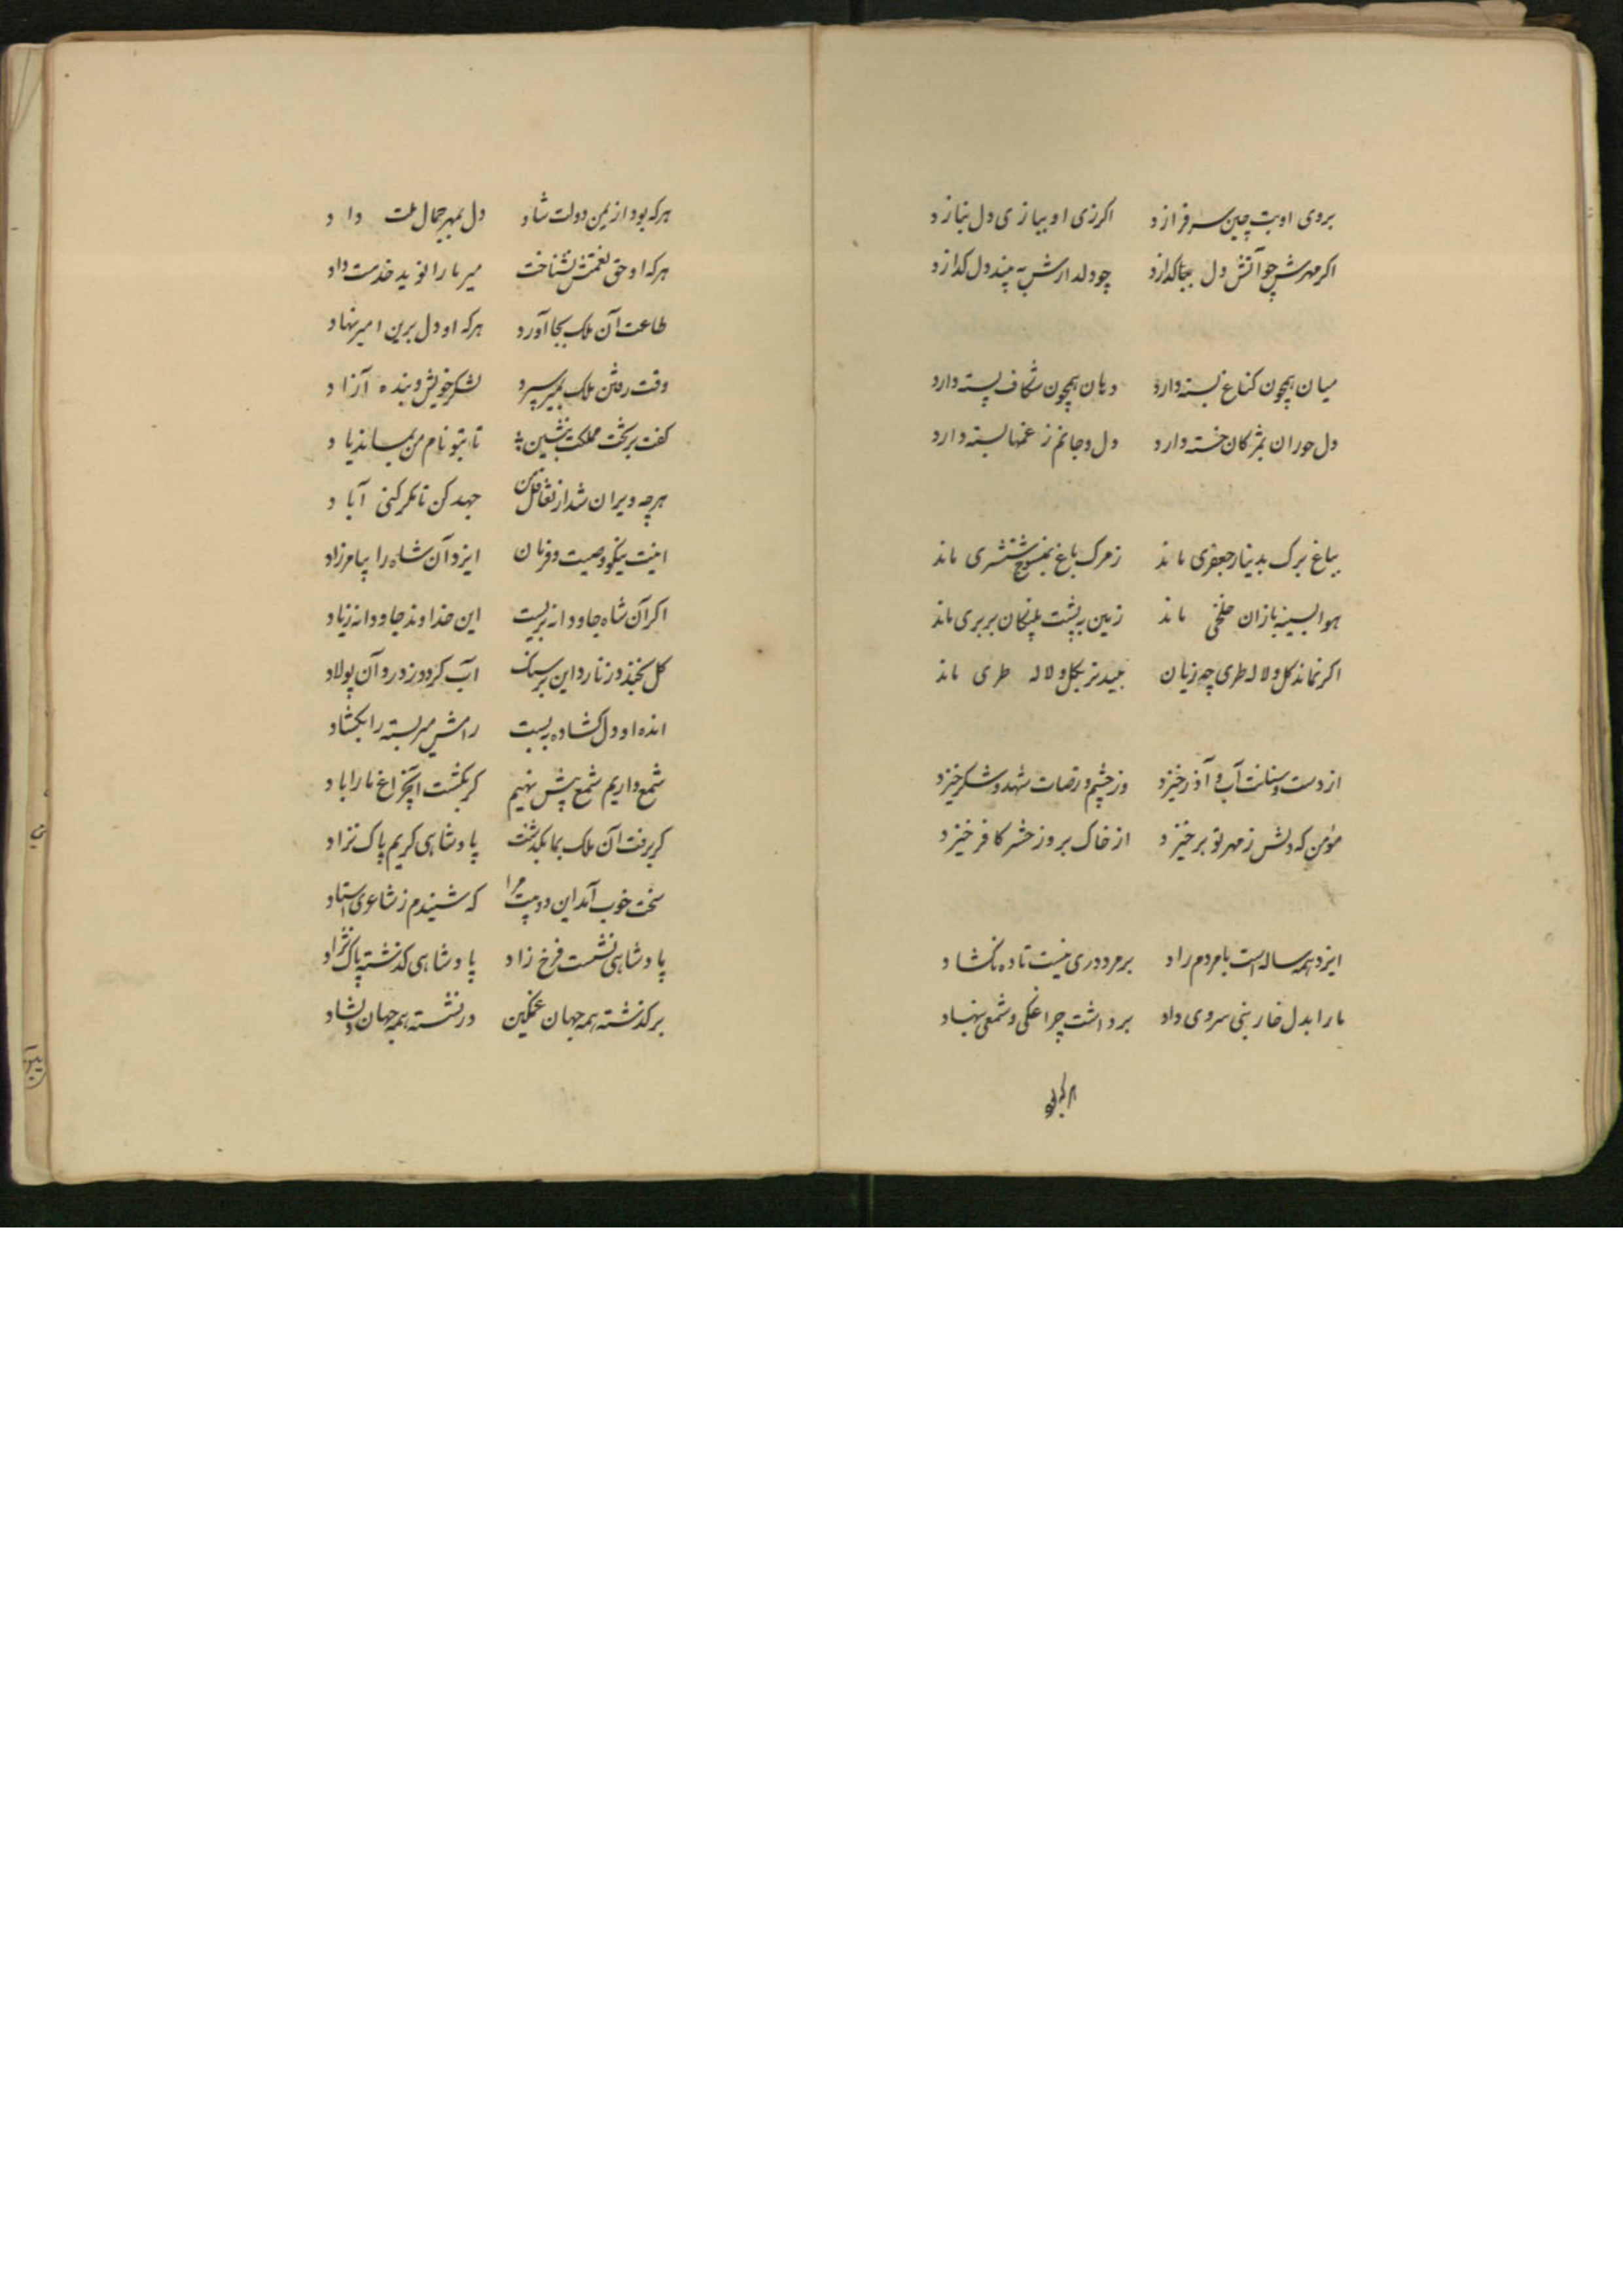 بروی او بت چین سرفرازد اکر زی او بیازی دل نیازد
اکر مهرش چو آتش دل بیتا کدازد چو دلدارش به پند دل کدازد
میان همچون کناغ بسته دارد دهان همچون شکاف پسته دارد
دل حوران بمژکان خسته دارد دل و جانم ز غمها بسته دارد
بباغ برک بدینار جعفری ماند زمرک باغ بمنسوج ششتری ماند
هوا بسینه بازان خلخی ماند زمین به پشت پلنکان بربری ماند
اکر نماند کل و لاله طری چه زیان نبید نیز بکل و لاله طری ماند
از دست و سنانت آب و آذر خیزد وز خشم و رضات شهد و شکر خیزد
مؤمن که دلش ز مهر تو برخیزد از خاک بروز حشر کافر خیزد
ایزد همه ساله است با مردم راد بر مرد دری نبست تا ده نکشاد
ما را بدل خار بنی سروی داد برداشت چراغکی و شمعی بنهاد
هر که بود از یمن دولت شاد دل بمهر جمال ملت داد
هر که او حق نعمتش نشناخت میر ما را نوید خدمت داد
طاعت آن ملک بجا آورد هر که او دل برین امیر نهاد
وقت رفتن ملک بمیر سپرد لشکر خویش و بنده آزاد
کفت بر تخت مملکت بنشین تا بتو نام من بماند یاد
هرچه ویران شد از تغافل من جهد کن تا مکر کنی آباد
اینت نیکو وصیت و فرمان ایزد آن شاه را بیامرزاد
اکر آن شاه جاودانه نزیست این خداوند جاودانه زیاد
کل بخندد ز نار و این بر سنک آب کردد ز درد آن پولاد
انده او دل کشاده ببست رامش میر بسته را بکشاد
شمع داریم شمع پیش نهیم کر بکشت آن چراغ ما را باد
کر برفت آن ملک بما بکذشت پادشاهی کریم پاک نژاد
سخت خوب آمد این دو بیت مرا که شنیدم ز شاعری استاد
پادشاهی نشست فرخ زاد پادشاهی کذشت پاک نژاد
بر کذشته همه جهان غمکین در نشسته همه جهان دلشاد